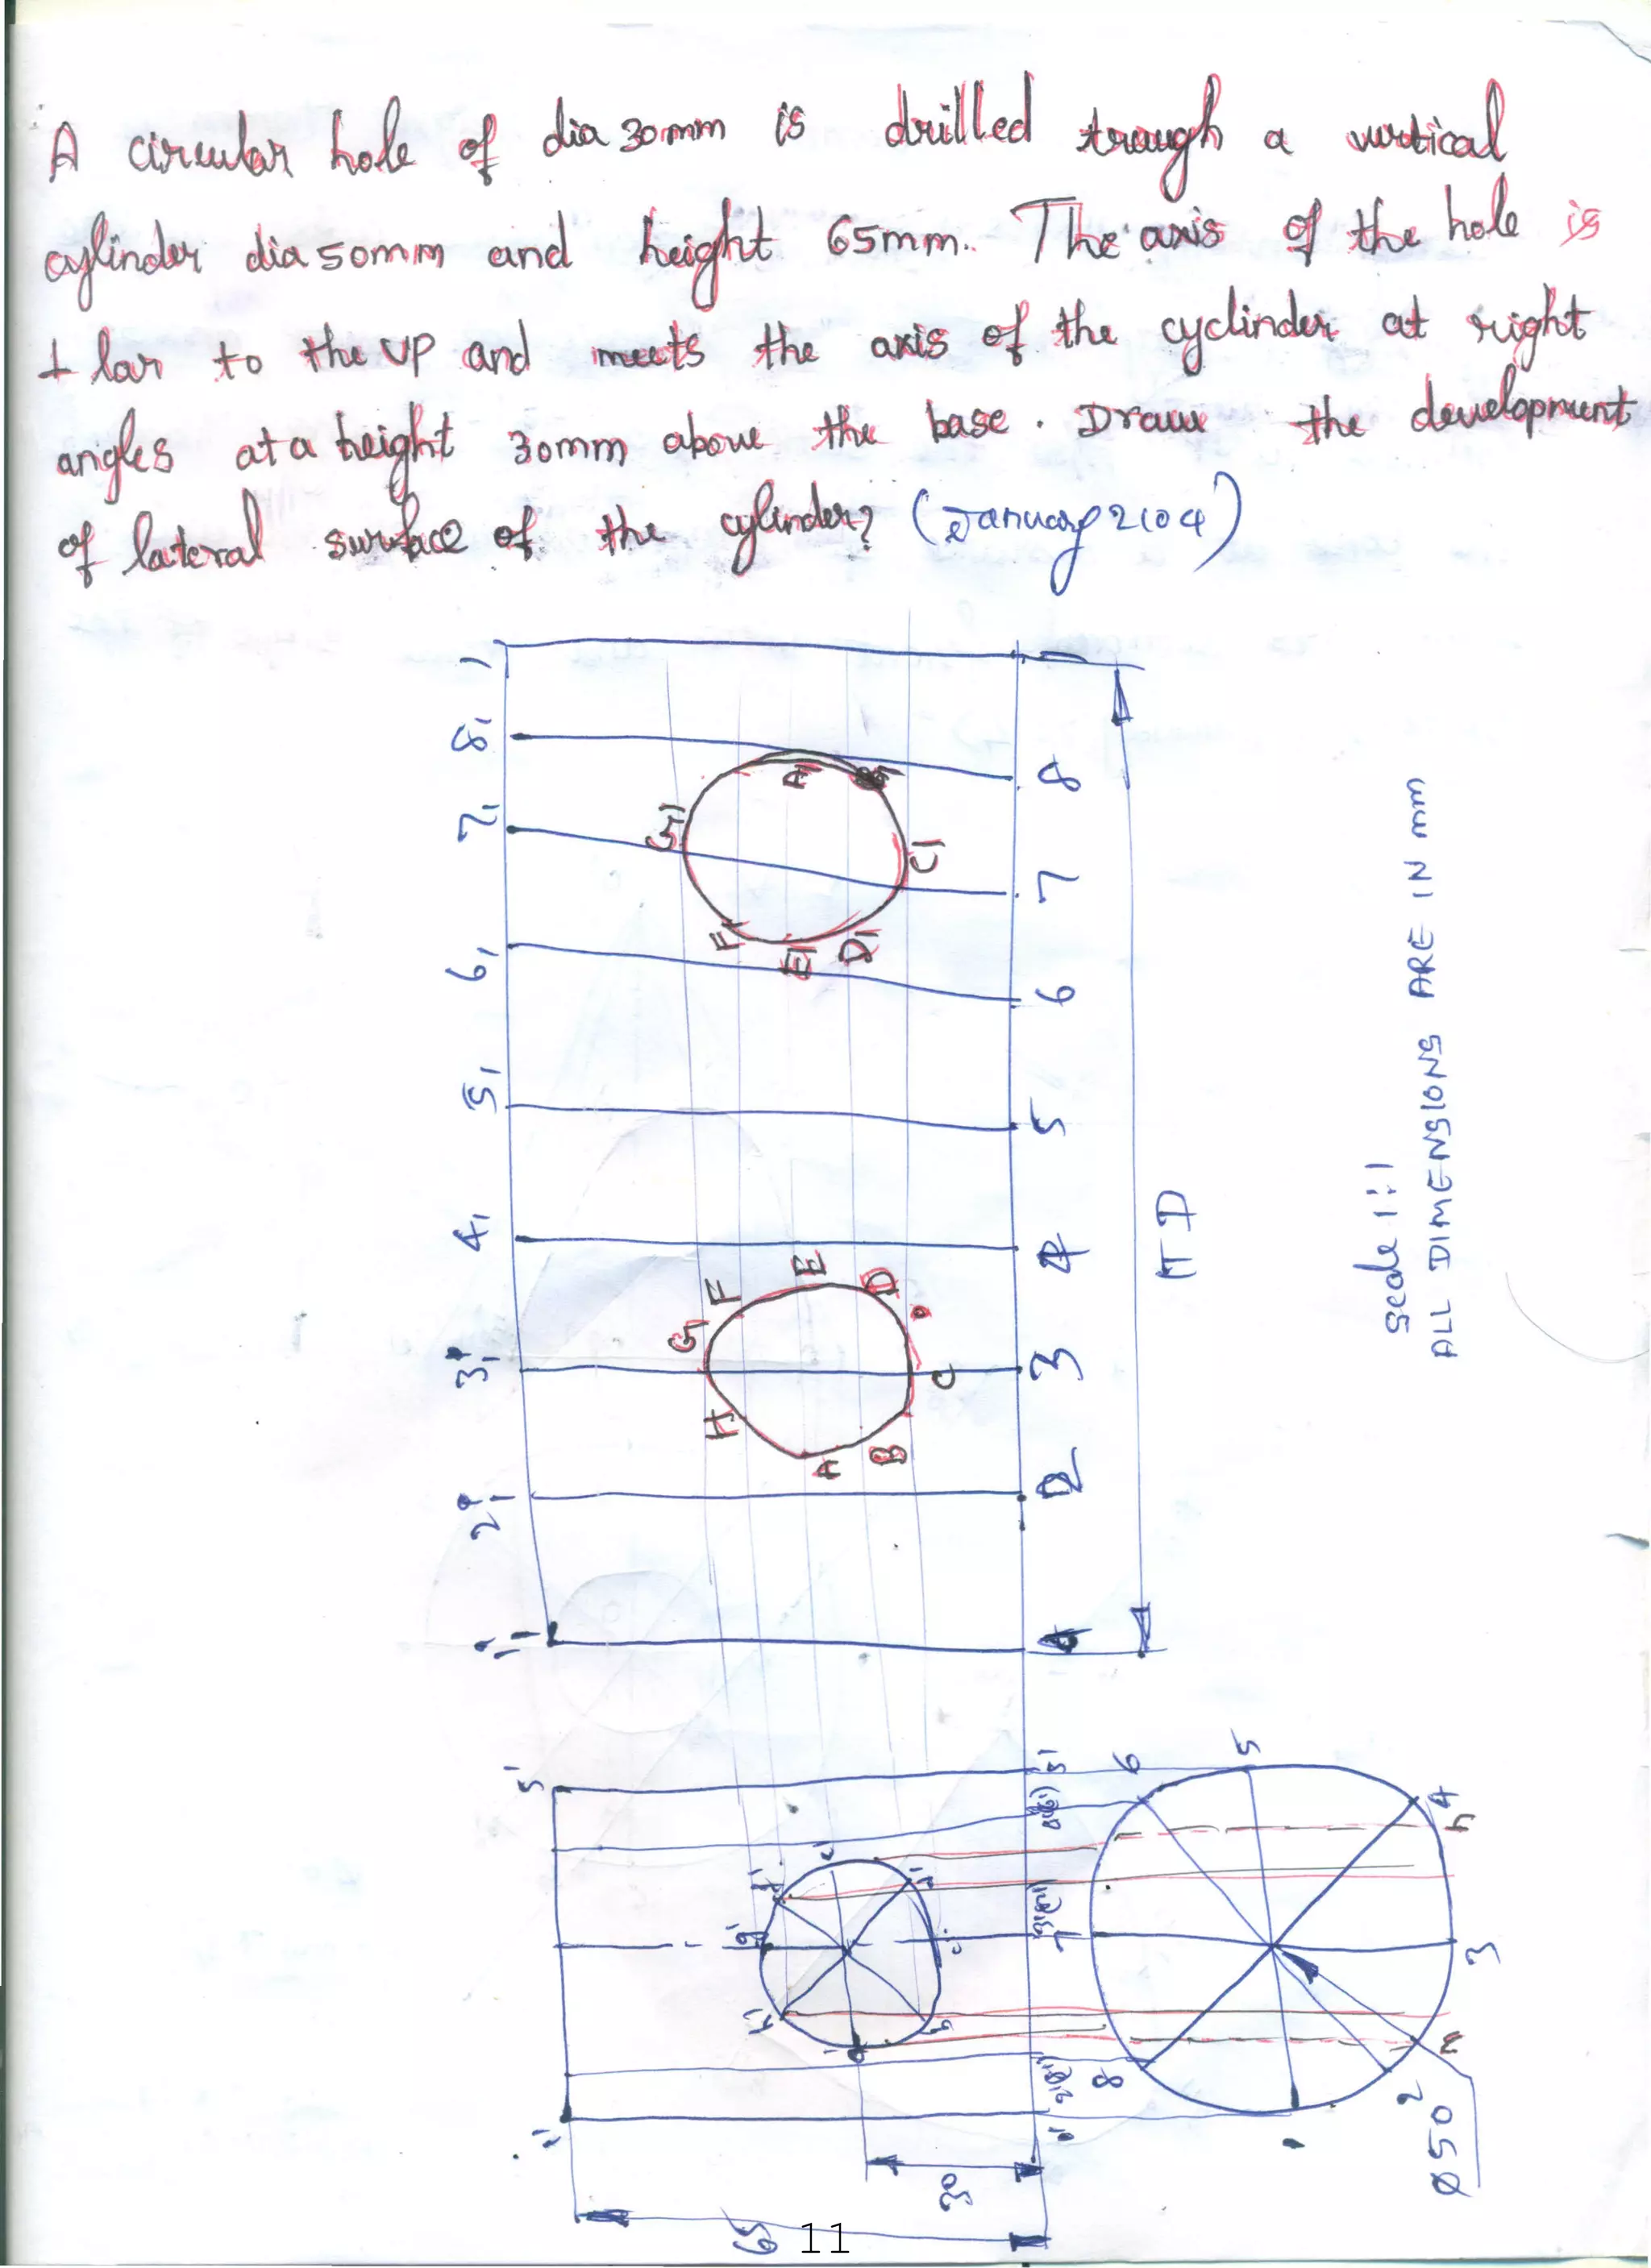 A circular hole of dia 30mm is drilled trough a vertical
cylinder dia 50mm and height 65mm. The axis of the hole is
⊥ lar to the VP and meets the axis of the cyclinder at right
angles at a height 30mm above the base. Draw the development
of lateral surface of the cylinder? (January 2104)
1
8₁ 8
A₁
7₁ G₁ C₁ 7
F₁ E₁ D₁
6₁ 6
5₁ 5
4₁ 4
F E D
G
3₁ C 3
H
A B
2₁ 2
πD
Scale 1:1
ALL DIMENSIONS ARE IN mm
5' 5' 6 5
4
g' c' 7 3
h'
8 2
1' 1
30
Ø50
65
11